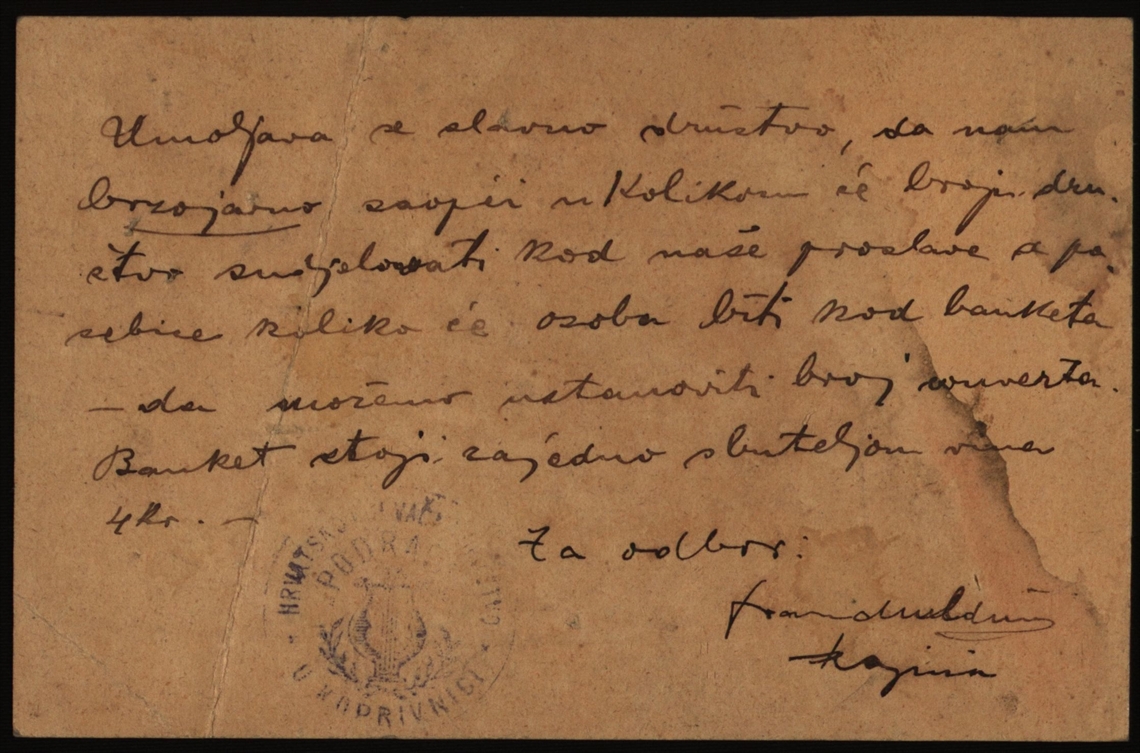 Umoljava se slavno društvo, da nam
brzojavno saopći u kolikom će broju dru-
štvo sudjelovati kod naše proslave a po-
sebice koliko će osoba biti kod banketa
– da možemo ustanoviti broj couverta.
Banket stoji zajedno s buteljom vina
4 Kr. –
Za odbor:
HRVATSKO PJEVAČKO
PODRA
U KOPRIVNICI